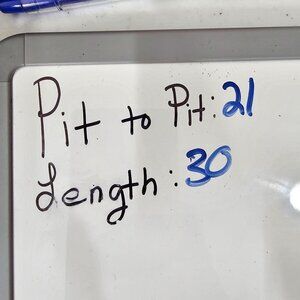 Pit to Pit: 21
Length: 30